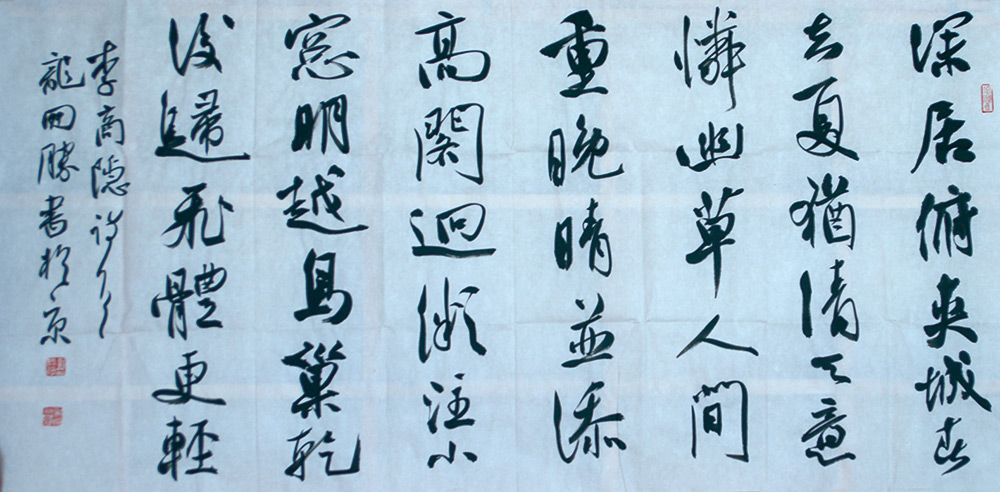 深居俯夾城春
去夏猶清天意
憐幽草人間
重晚晴並添
高閣迥微注小
窓明越鳥巢乾
後歸飛體更輕
李商隐詩
龍勝書於京